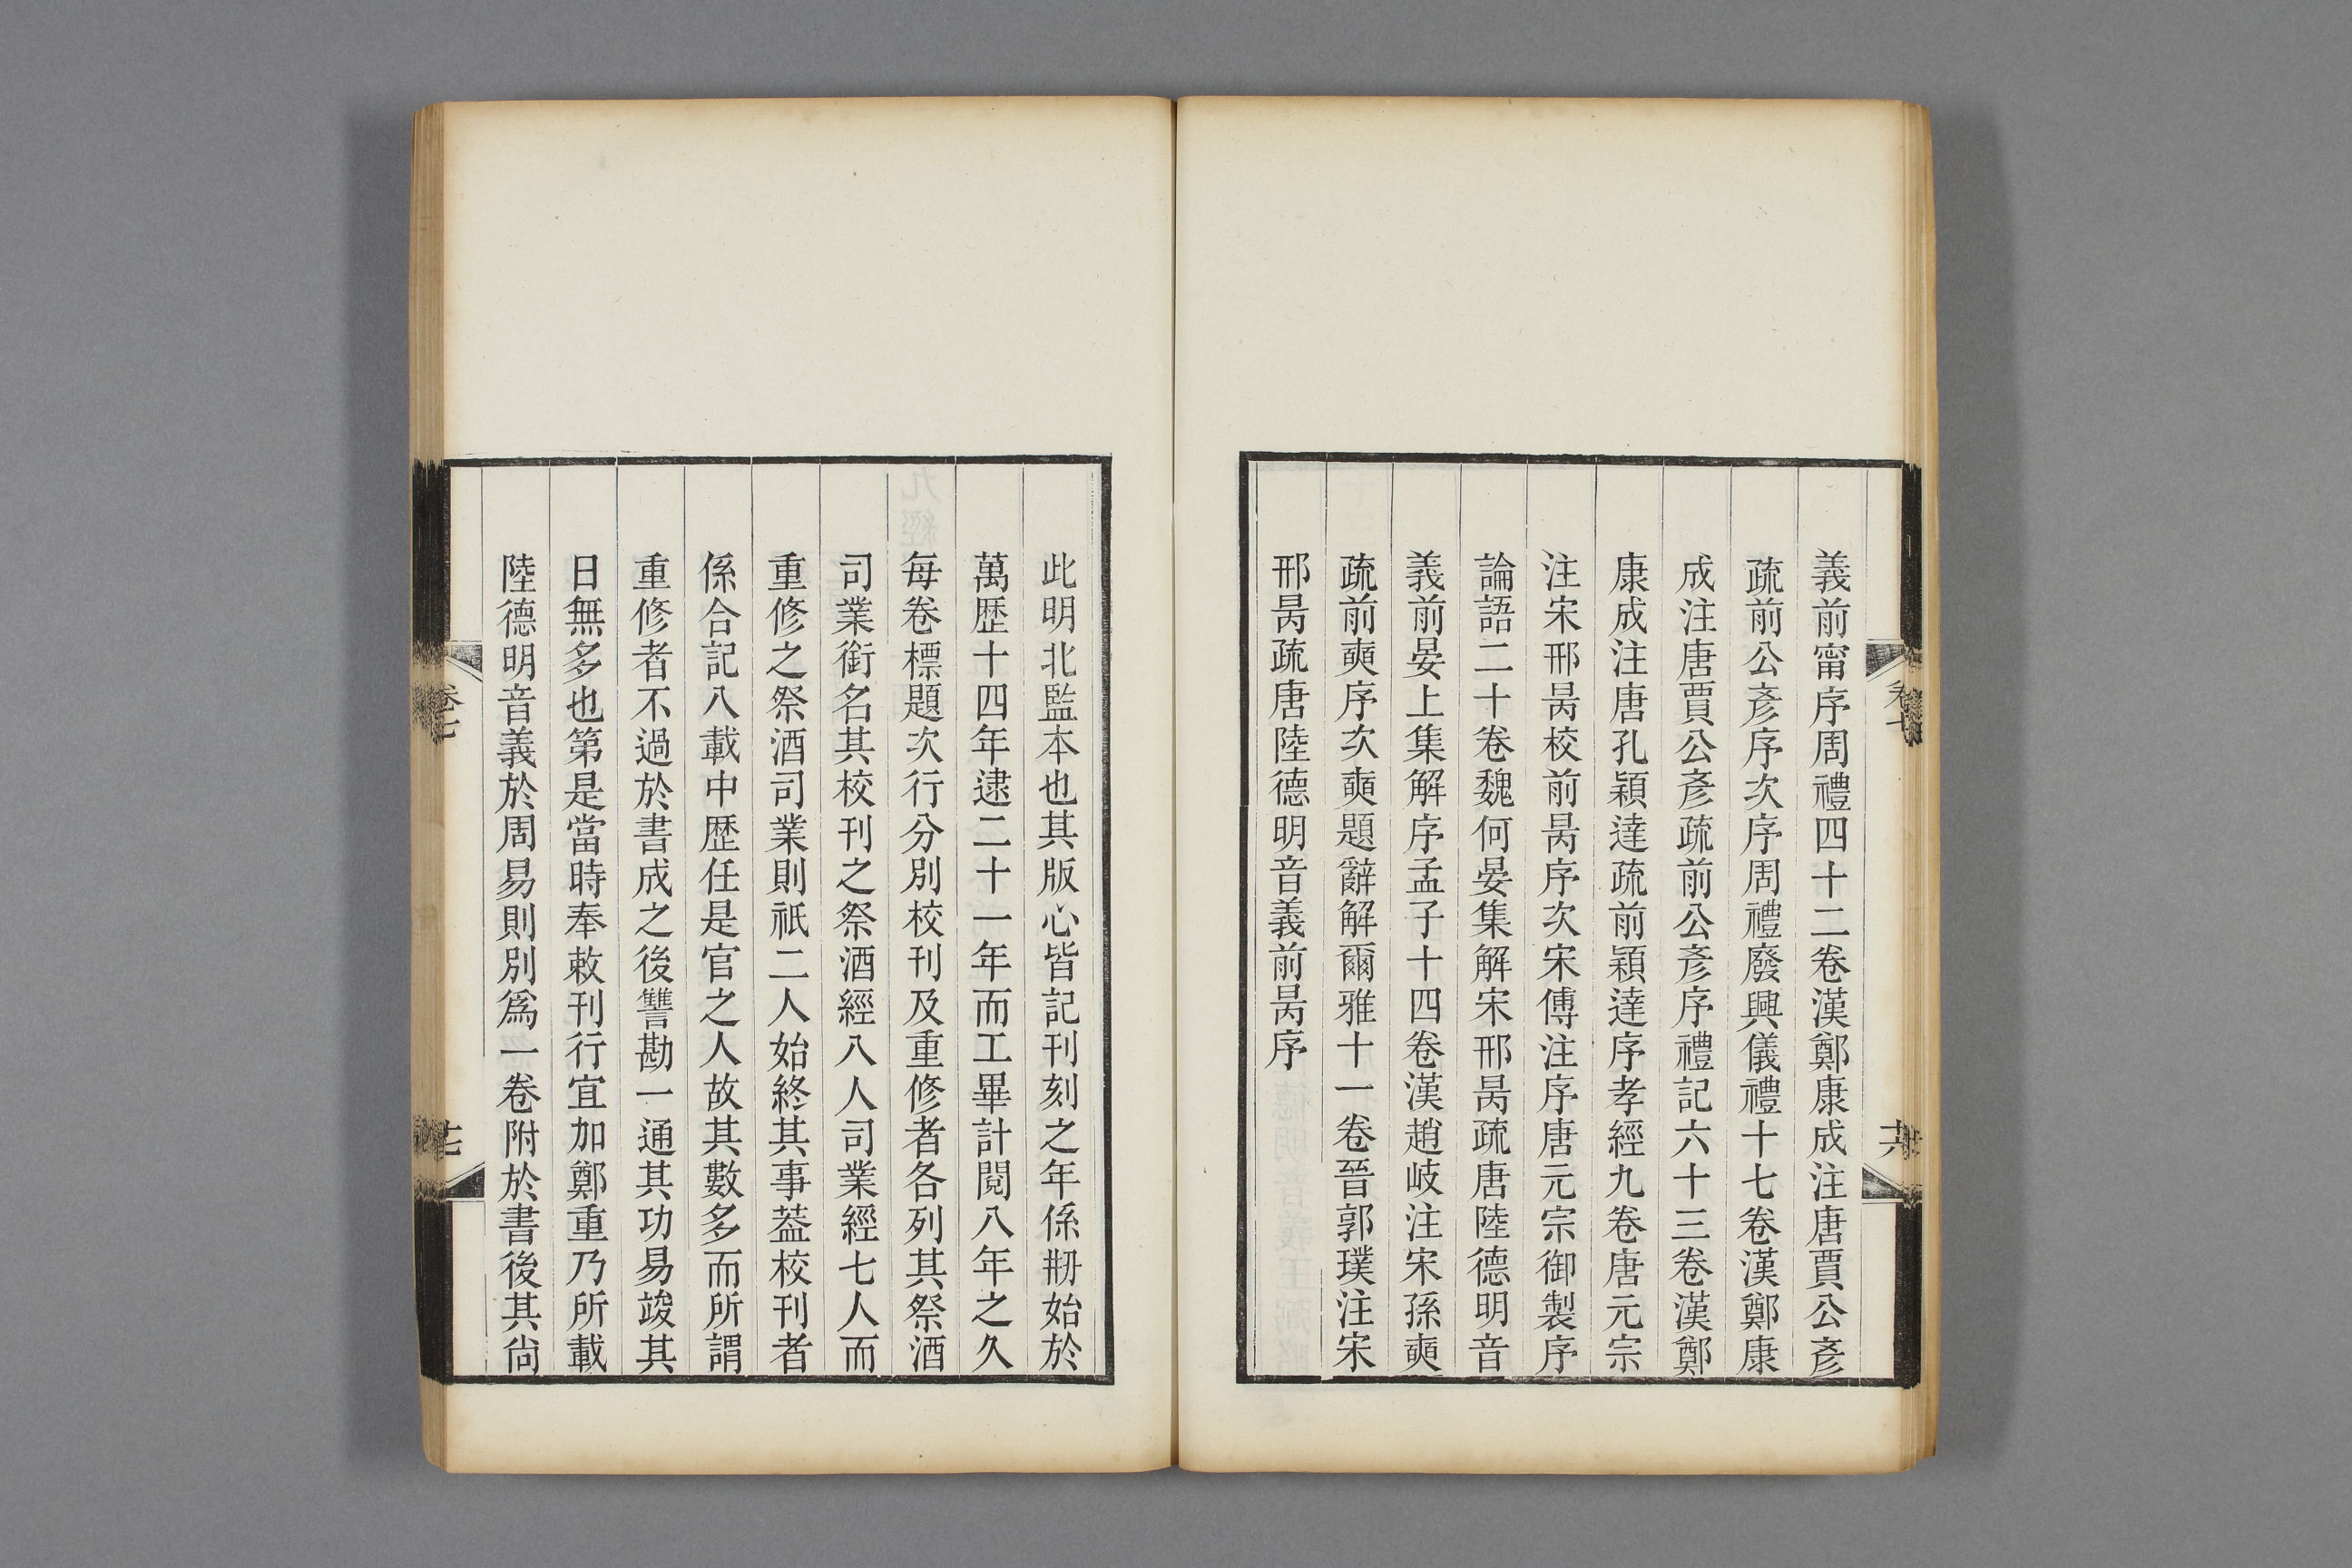 義前甯序周禮四十二卷漢鄭康成注唐賈公彥
疏前公彥序次序周禮廢興儀禮十七卷漢鄭康
成注唐賈公彥疏前公彥序禮記六十三卷漢鄭
康成注唐孔穎達疏前穎達序孝經九卷唐元宗
注宋邢昺校前昺序次宋傅注序唐元宗御製序
論語二十卷魏何晏集解宋邢昺疏唐陸德明音
義前晏上集解序孟子十四卷漢趙岐注宋孫奭
疏前奭序次奭題辭解爾雅十一卷晉郭璞注宋
邢昺疏唐陸德明音義前昺序
此明北監本也其版心皆記刊刻之年係刱始於
萬歷十四年逮二十一年而工畢計閱八年之久
每卷標題次行分別校刊及重修者各列其祭酒
司業銜名其校刊之祭酒經八人司業經七人而
重修之祭酒司業則祇二人始終其事葢校刊者
係合記八載中歷任是官之人故其數多而所謂
重修者不過於書成之後讐勘一通其功易竣其
日無多也第是當時奉敕刊行宜加鄭重乃所載
陸德明音義於周易則別爲一卷附於書後其尙
卷七